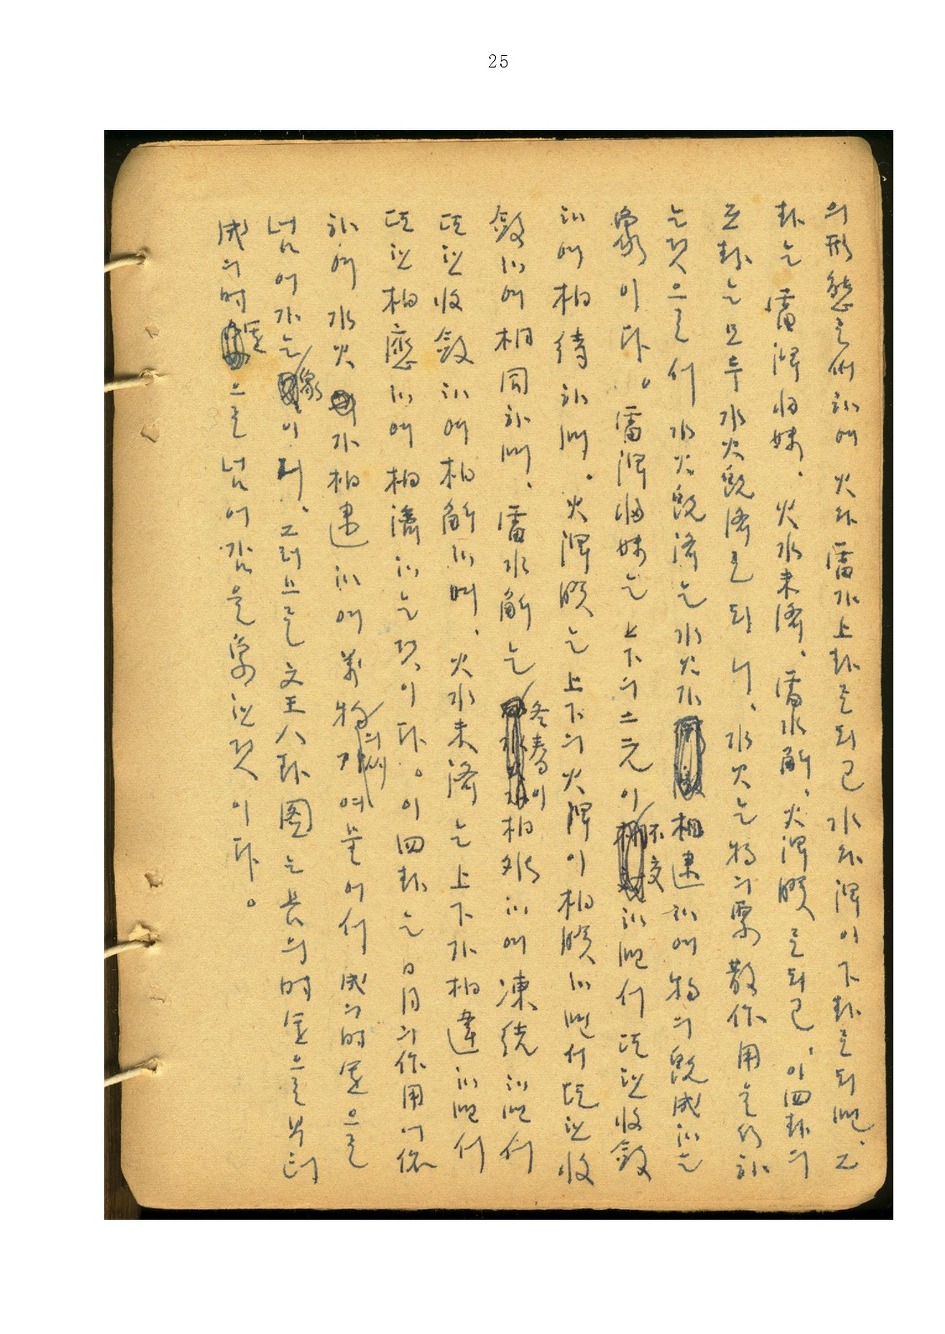 25
의 形態로서 하여 火와 雷가 上卦로 되고 水와 澤이 下卦로 되며, 그
卦는 雷澤歸妹, 火水未濟, 雷水解, 火澤睽로 되고, 이 四卦의
互卦는 모두 水火旣濟로 되니, 水火는 物의 聚散作用을 하
는 것으로서 水火旣濟는 水火가 相逮하여 物의 旣成하는
象이다。 雷澤歸妹는 上下의 二元이 不交하면서 또한 收斂
하여 相待하며, 火澤睽는 上下의 火澤이 相睽하면서 또한 收
斂하여 相同하며, 雷水解는 冬春이 相 하여 凍結하면서
또한 收斂하여 相解하며, 火水未濟는 上下가 相違하면서
또한 相應하여 相濟하는 것이다。 이 四卦는 日月의 作用에 依
하여 水火가 相逮하여 萬物의 씨가 여물어서 成의 時運으로
넘어가는 像이며, 그러므로 文王八卦圖는 長의 時運으로부터
成의 時運으로 넘어감을 象한 것이다。